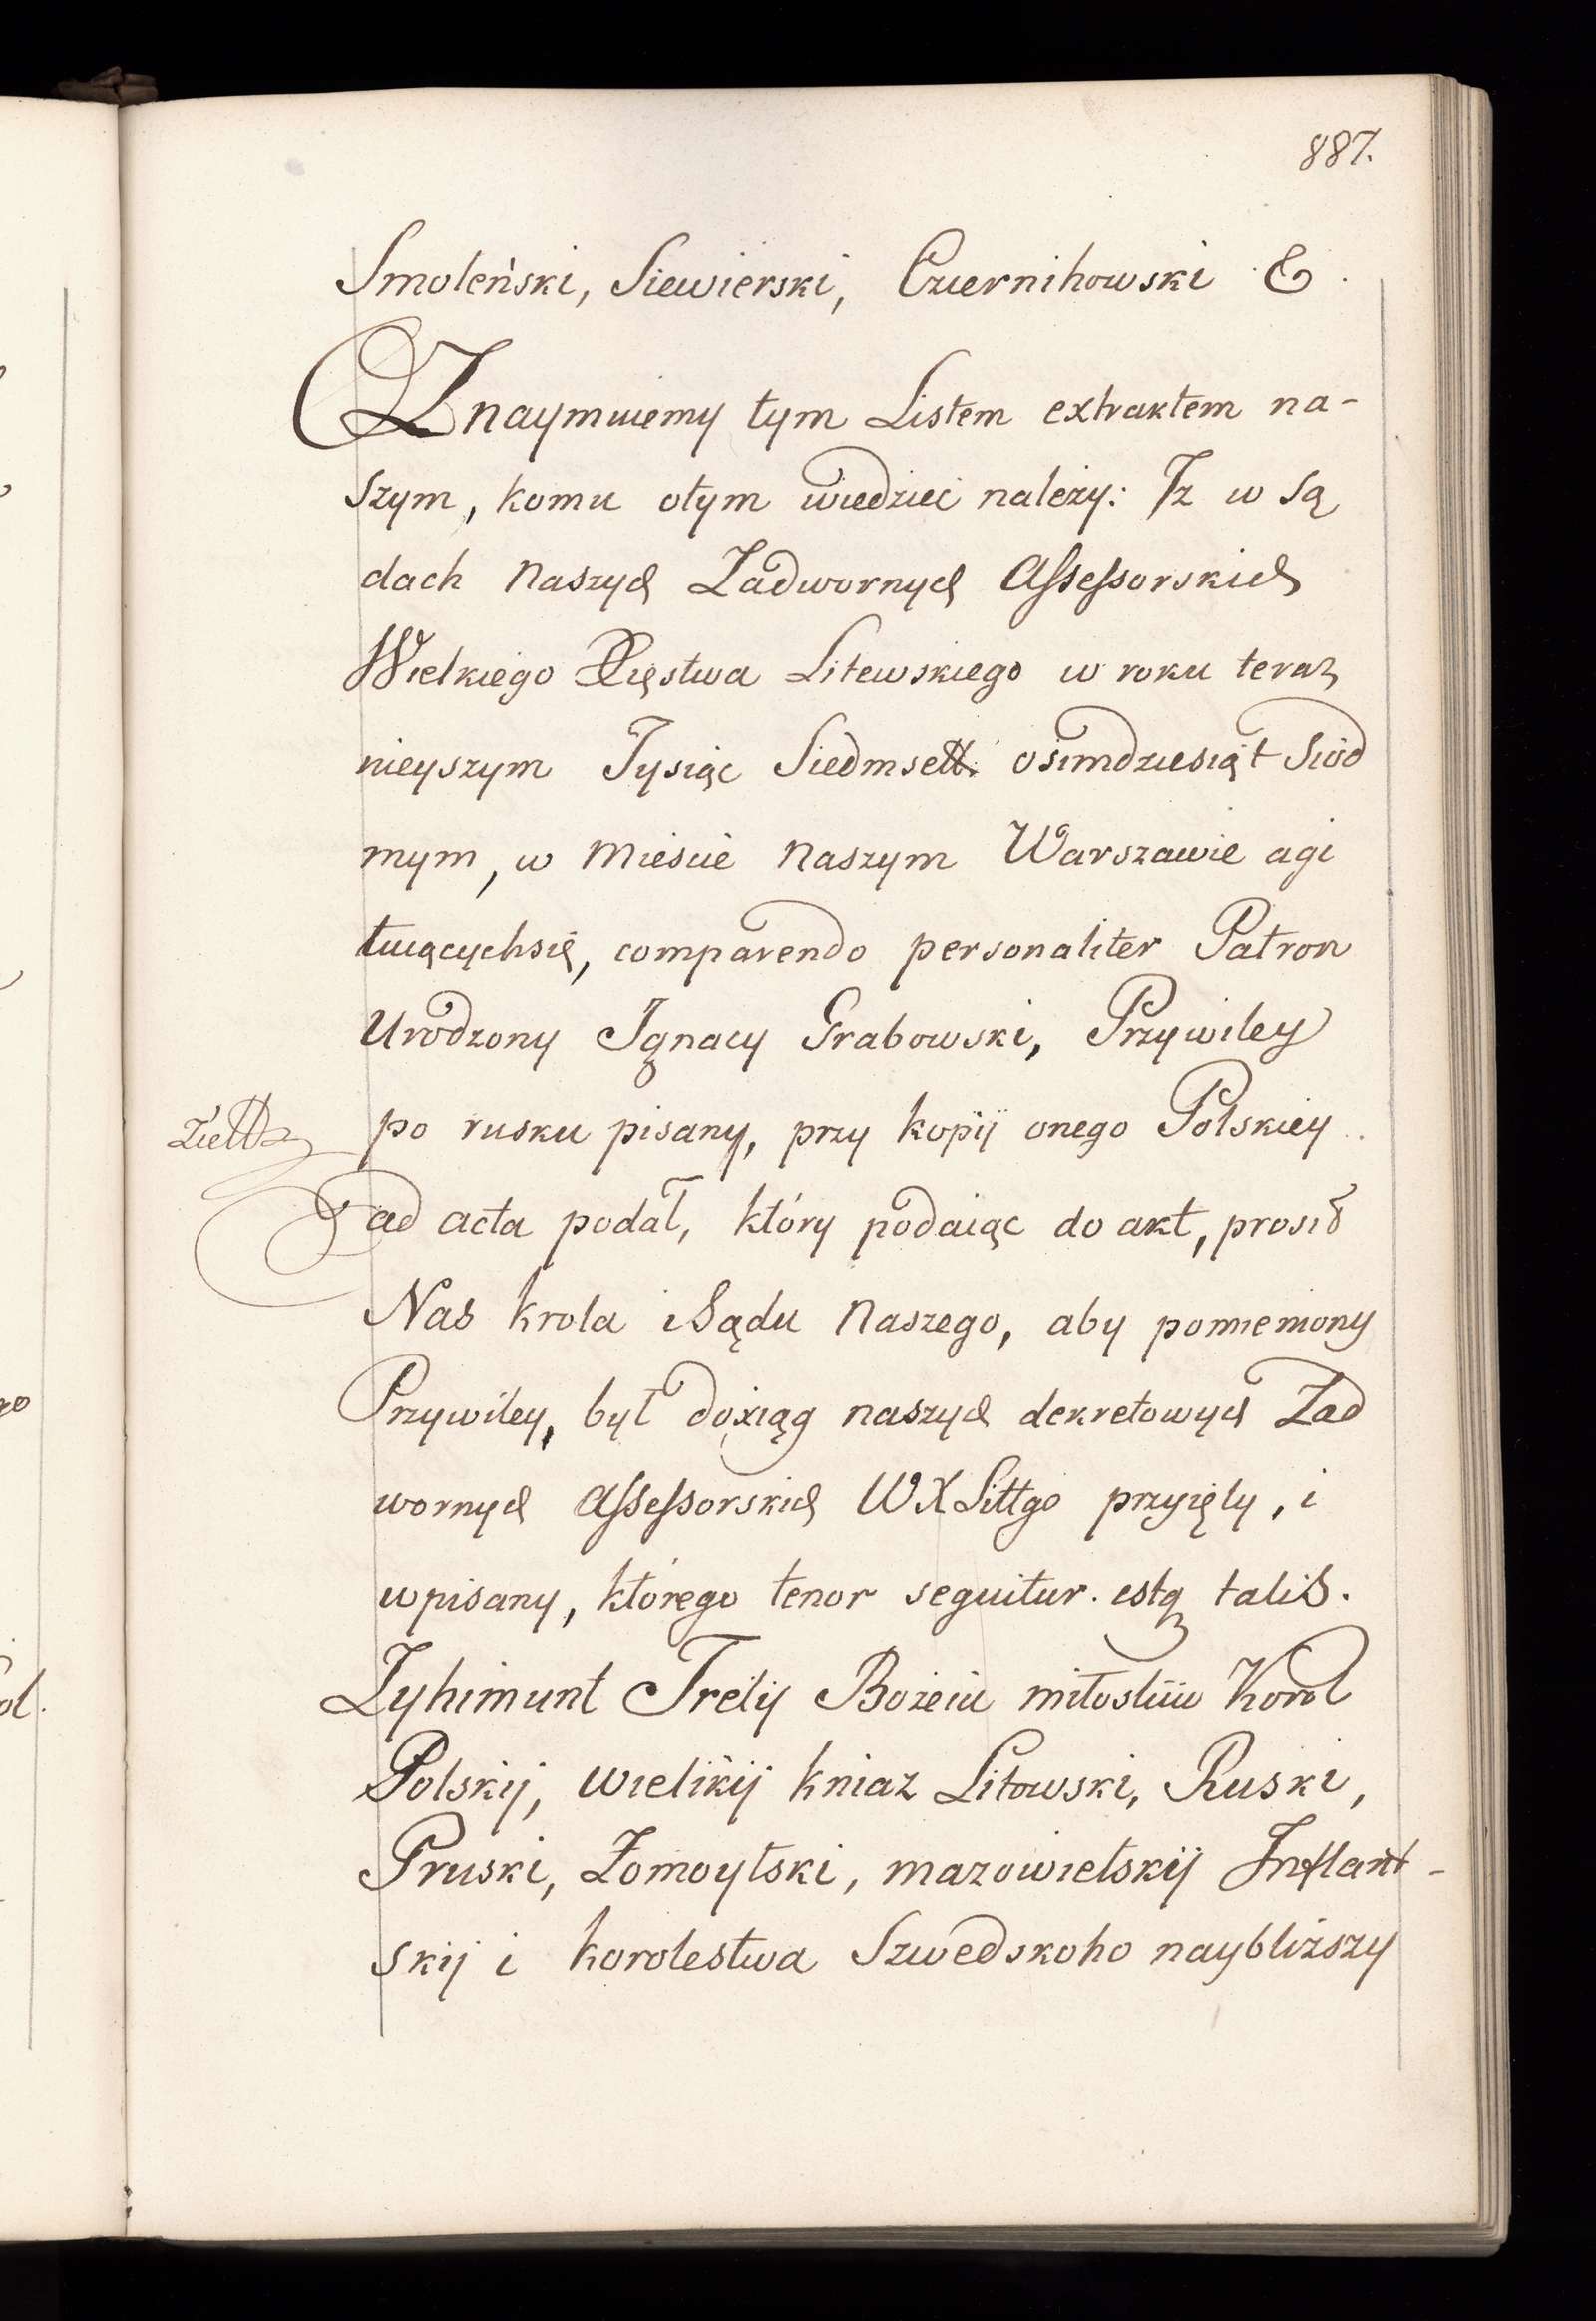 887.
Smoleński, Siewierski, Czernihowski &.
Oznaymuiemy tym Listem extraktem na-
szym, komu otym wiedzieć należy: Iż w są
dach naszych Zadwornych Assessorskich
Wielkiego Xięstwa Litewskiego w roku teraz
nieyszym Tysiąc Siedmset osimdziesiąt Siód
mym, w Mieście naszym Warszawie agi
tuiącychsię, comparendo personaliter Patron
Urodzony Ignacy Grabowski, Przywiley
po rusku pisany, przy kopij onego Polskiey
ad acta podał, który podaiąc do akt, prosił
Nas krola i Sądu Naszego, aby pomieniony
Przywiley, był doxiąg naszych dekretowych Zad
wornych Assessorskich WXLittgo przyięty, i
wpisany, którego tenor sequitur. estq talis.
Zyhimunt Tretij Bożeiu miłostiiu Korol
Polskij, wielikij kniaz Litowski, Ruski,
Pruski, Żomoytski, mazowietskij Inflant-
skij i korolestwa Szwedskoho naybliższy